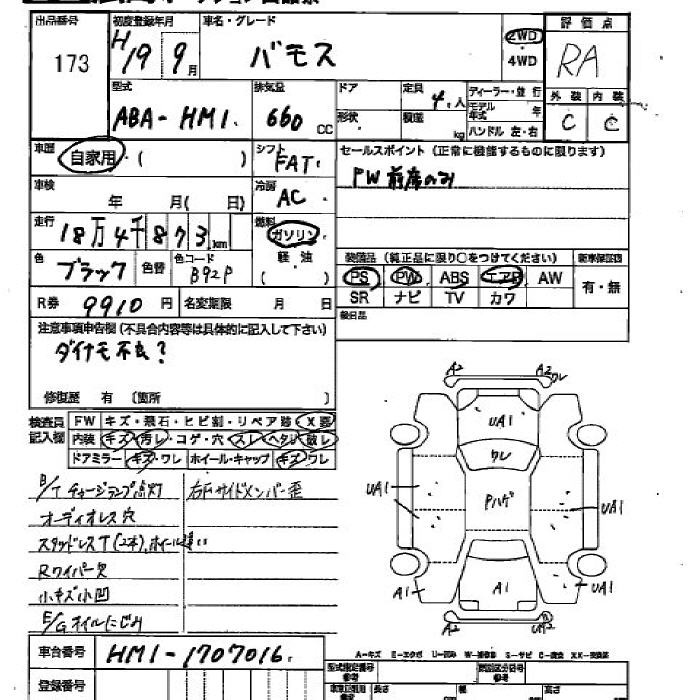 出品番号 初度登録年月 車名・グレード 評価点
173 H19 9月 バモス 2WD ・ 4WD RA
型式 排気量 ドア 定員 ディーラー・並行 外装 内装
ABA-HM1 660 CC 形状 4人 積載 kg モデル年式 年 C C
ハンドル 左・右
車歴 自家用・( ) シフト FAT セールスポイント(正常に機能するものに限ります)
車検 年 月( 日) 冷房 AC PW前席のみ
走行 18万4千873km 燃料 ガソリン・軽油 ( )
色 ブラック 色替 色コード B92P
装備品 (純正品に限り○をつけてください) 新車保証書
PS PW ABS エアB AW 有・無
SR ナビ TV カワ
R券 9910円 名変期限 月 日
後日品
注意事項申告欄(不具合内容等は具体的に記入して下さい)
ダイナモ不良?
修復歴 有 〔箇所 〕
検査員記入欄 FW キズ・飛石・ヒビ割・リペア跡・X要
内装 キズ・汚レ・コゲ・穴・スレ・ヘタレ・破レ
ドアミラー キズ・ワレ ホイール・キャップ キズ・ワレ
B/Tチャージランプ点灯 右Fサイドメンバー歪
オーディオレス穴
スタッドレスT(2本).ホイール違い
Rワイパー欠
小キズ小凹
E/Gオイルにじみ
A2 A2 ワレ
UA1
ワレ
UA1 Pハゲ UA1
A1 A1 A1
A2 UA2
A-キズ E-エクボ U-凹み W-補修跡 S-サビ C-腐食 XX-交換
車台番号 HM1-1707016
登録番号
型式指定番号 類別区分番号
長さ 幅 高さ